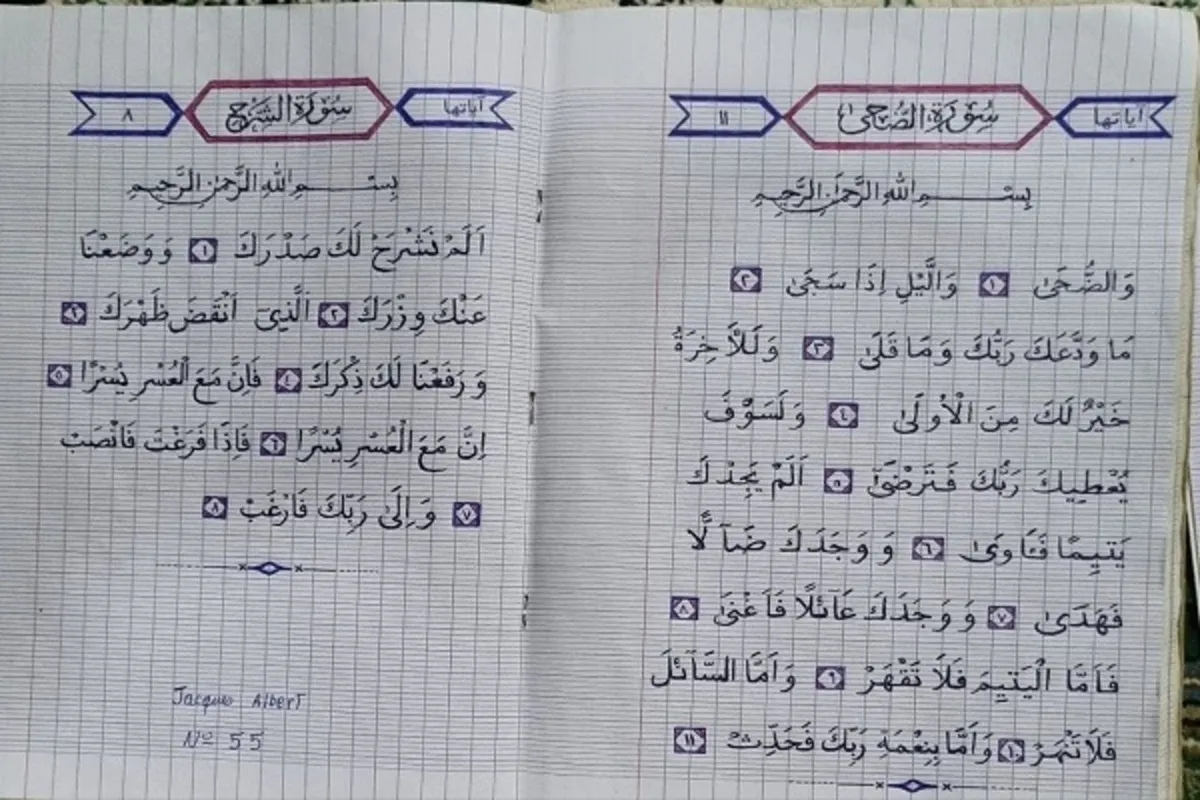 آياتها سُورَةُ الضُّحَىٰ ١١
بِسْمِ اللهِ الرَّحْمٰنِ الرَّحِيمِ
وَالضُّحَىٰ ١ وَالَّيْلِ إِذَا سَجَىٰ ٢
مَا وَدَّعَكَ رَبُّكَ وَمَا قَلَىٰ ٣ وَلَلْأَخِرَةُ
خَيْرٌ لَكَ مِنَ الْأُولَىٰ ٤ وَلَسَوْفَ
يُعْطِيكَ رَبُّكَ فَتَرْضَىٰٓ ٥ اَلَمْ يَجِدْكَ
يَتِيمًا فَـَٔاوَىٰ ٦ وَوَجَدَكَ ضَآلًّا
فَهَدَىٰ ٧ وَوَجَدَكَ عَآئلًا فَاَغْنَىٰ ٨
فَاَمَّا الْيَتِيمَ فَلَا تَقْهَرْ ٩ وَاَمَّا السَّآئلَ
فَلَا تَنْهَرْ ١٠ وَاَمَّا بِنِعْمَةِ رَبِّكَ فَحَدِّثْ ١١
آياتها سُورَةُ الشَّرْحِ ٨
بِسْمِ اللهِ الرَّحْمٰنِ الرَّحِيمِ
اَلَمْ نَشْرَحْ لَكَ صَدْرَكَ ١ وَوَضَعْنَا
عَنْكَ وِزْرَكَ ٢ اَلَّذِىٓ اَنْقَضَ ظَهْرَكَ ٣
وَرَفَعْنَا لَكَ ذِكْرَكَ ٤ فَاِنَّ مَعَ الْعُسْرِ يُسْرًا ٥
اِنَّ مَعَ الْعُسْرِ يُسْرًا ٦ فَاِذَا فَرَغْتَ فَانْصَبْ
٧ وَاِلَىٰ رَبِّكَ فَارْغَبْ ٨
Jacques Albert
Nº 55